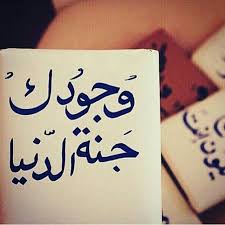 وجودك
جنة الدّنيا